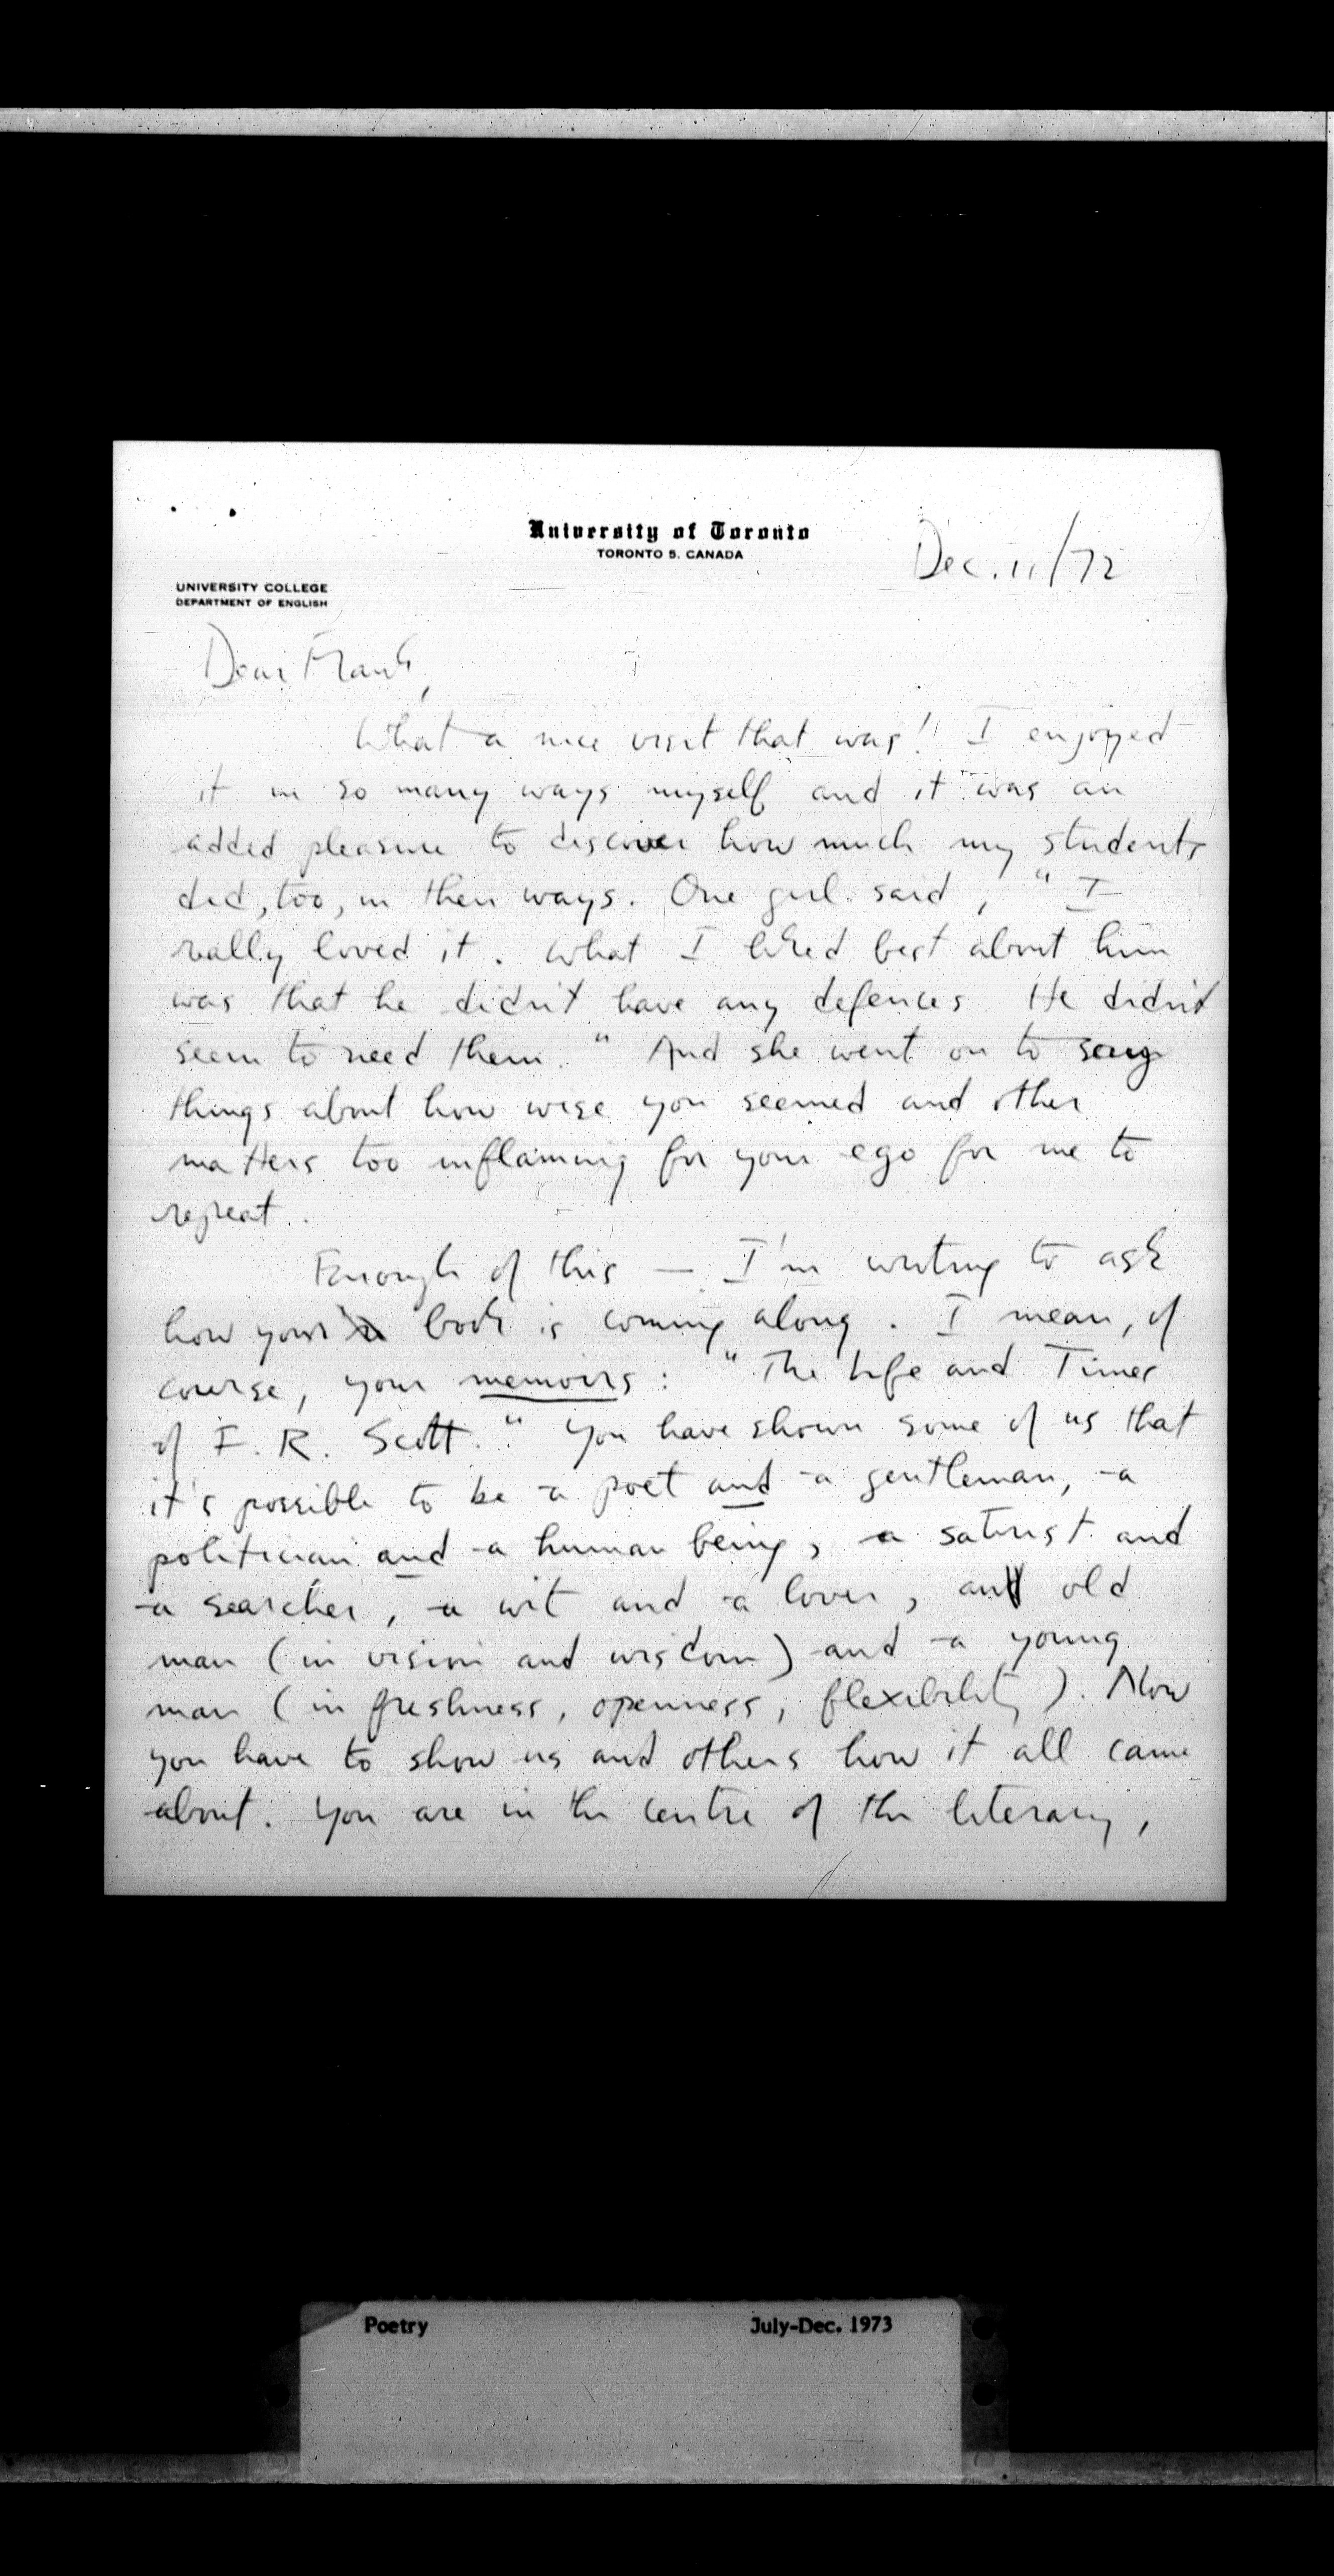 University of Toronto
TORONTO 5, CANADA
Dec. 11/72
UNIVERSITY COLLEGE
DEPARTMENT OF ENGLISH
Dear Frank,
What a nice visit that was! I enjoyed
it in so many ways myself and it was an
added pleasure to discover how much my students
did, too, in their ways. One girl said, "I
really loved it. What I liked best about him
was that he didn't have any defences He didn't
seem to need them." And she went on to say
things about how wise you seemed and other
matters too inflaming for your ego for me to
repeat.
Enough of this — I'm writing to ask
how your book is coming along. I mean, of
course, your memoirs: "The Life and Times
of F. R. Scott." You have shown some of us that
it's possible to be a poet and a gentleman, a
politician and a human being, a satirist and
a searcher, a wit and a lover, an old
man (in vision and wisdom) and a young
man (in freshness, openness, flexibility). Now
you have to show us and others how it all came
about. You are in the centre of the literary,
Poetry July-Dec. 1973